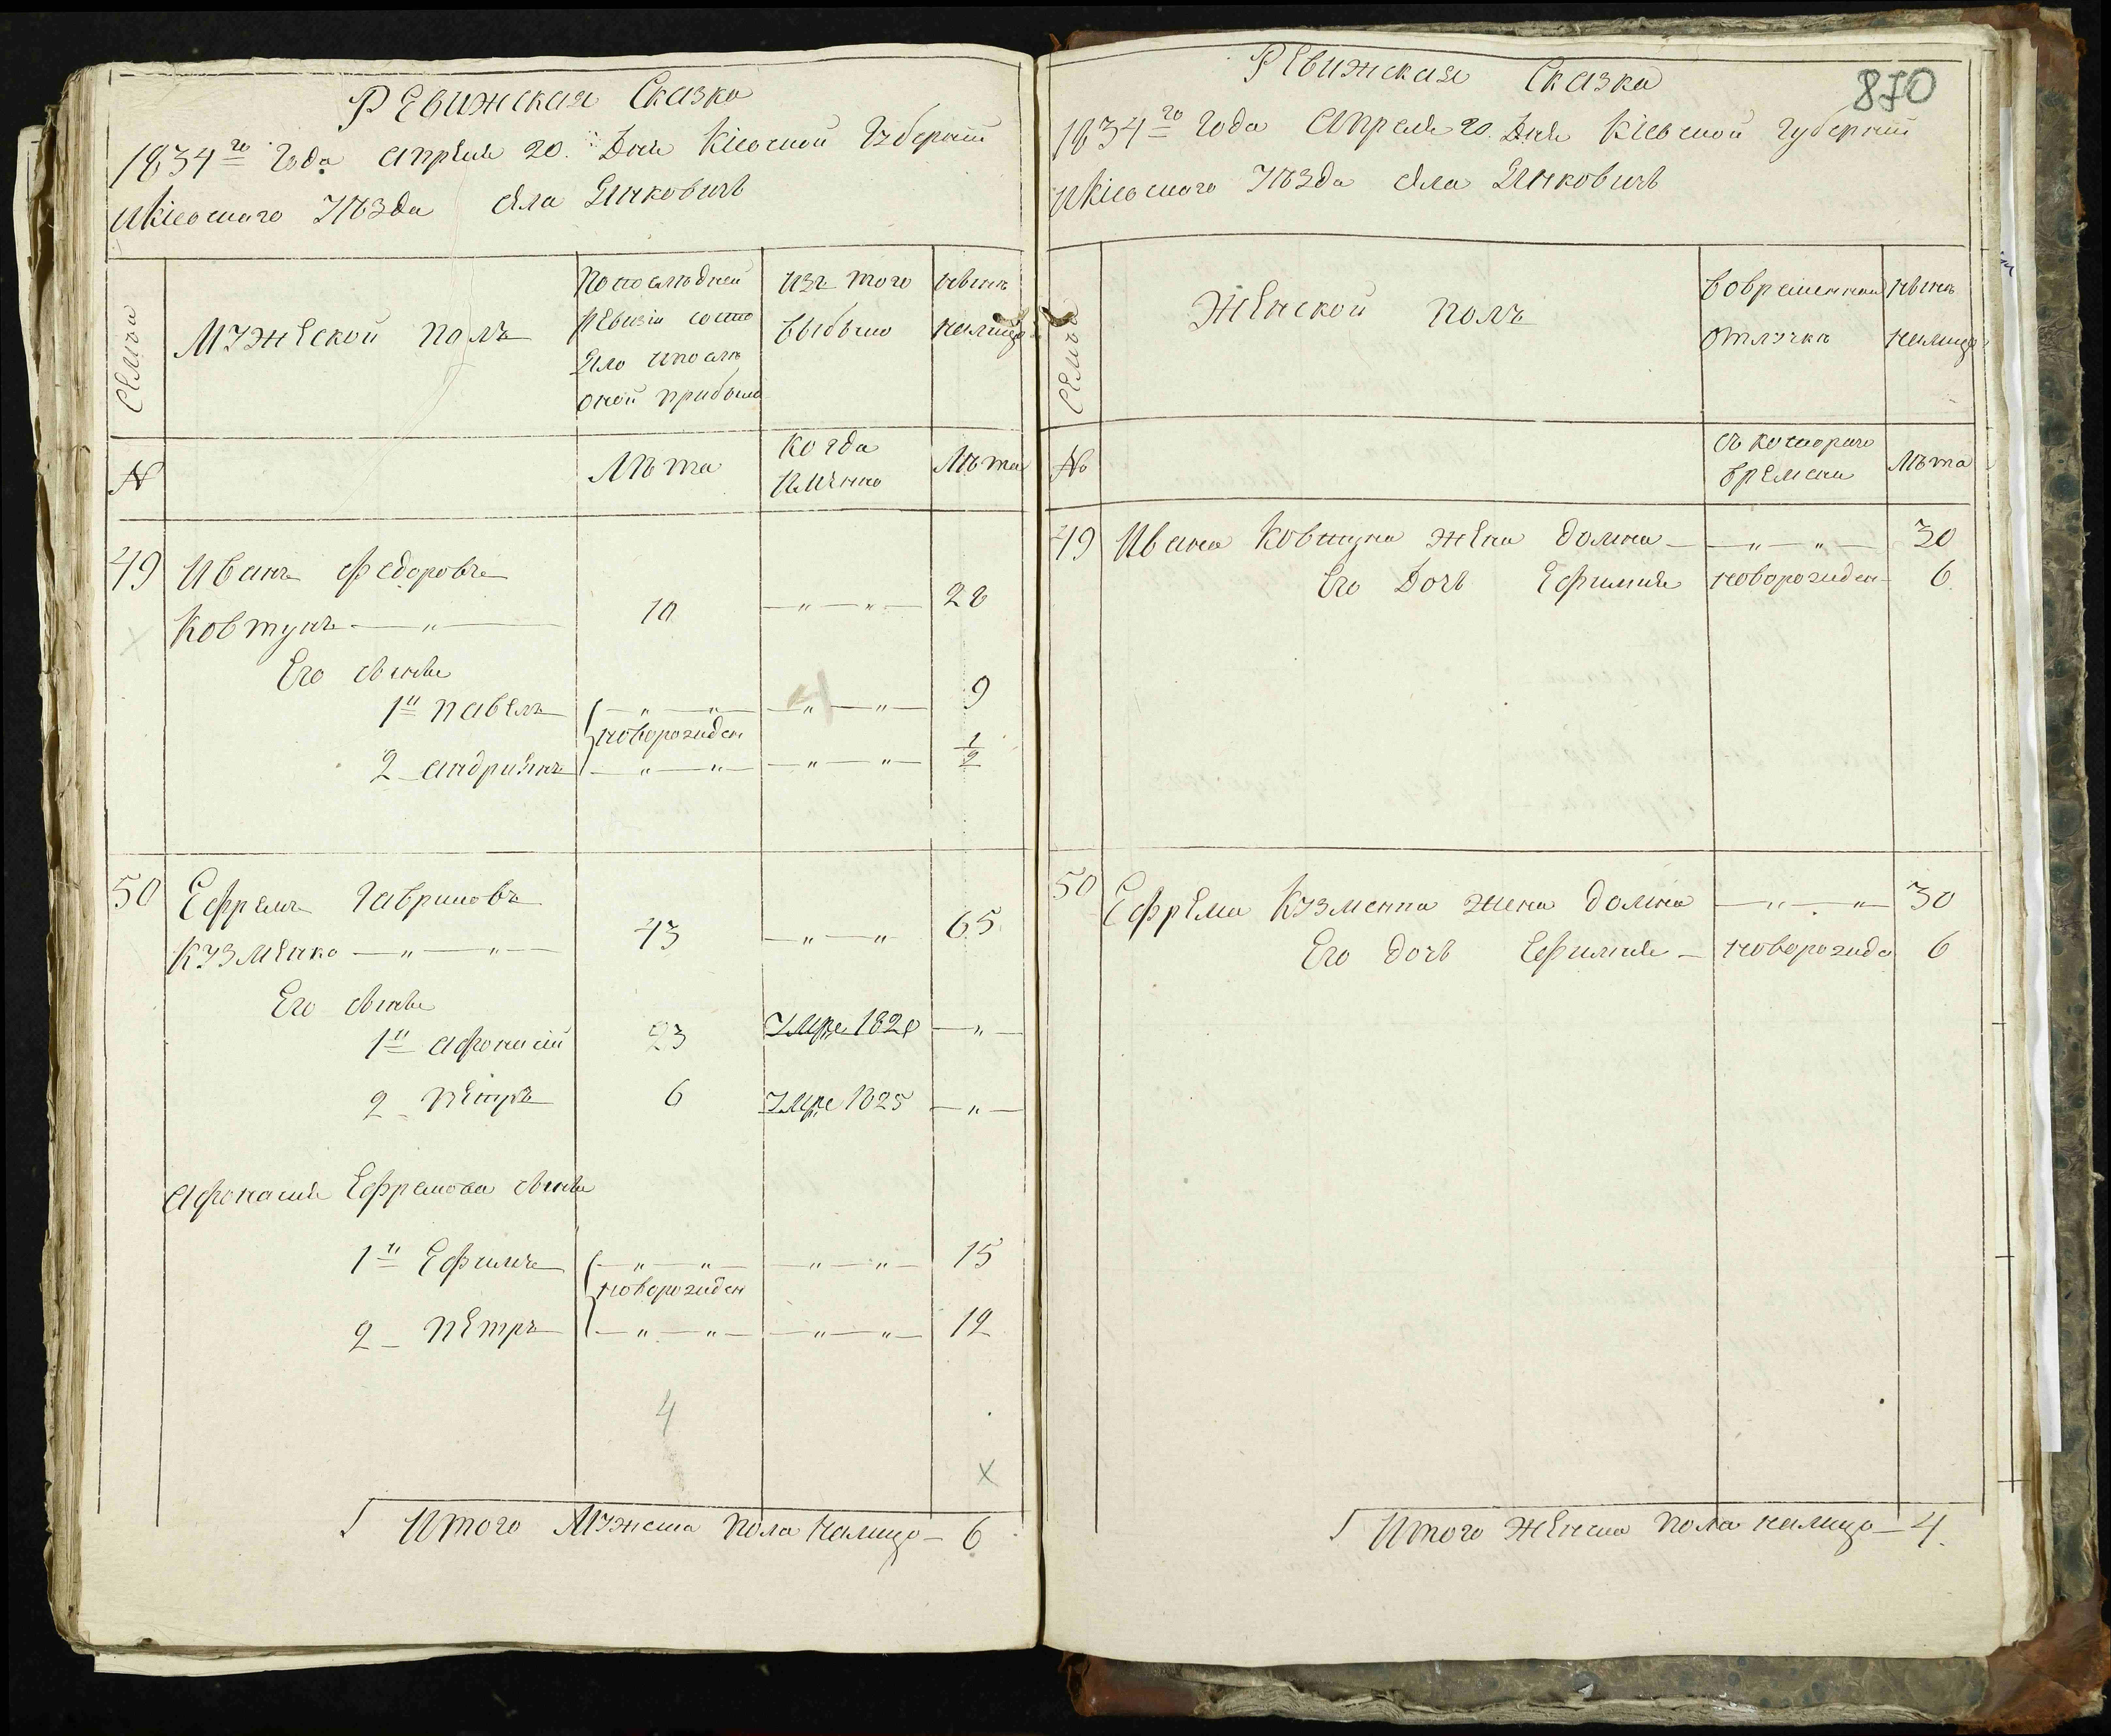 Ревижская Сказка
1834го Года Апреля 20. Дня Кіевской Губерніи
и Кіевскаго Уѣзда села Янковичь
Семьи
Мужеской полъ
По последней
ревизіи состо
яло и после
оной прибыло
Изъ того
выбыло
Нынѣ
налицо
№
Лѣта
Когда
имянно
Лѣта
49
Иванъ Федоровъ
Ковтунъ
10
28
Его сыновья
1й Павелъ
9
новорожден
2 Андриянъ
1/2
50
Ефремъ Гавриловъ
Кузменко
43
65
Его сыновья
1й Афонасій
23
Умре 1820
2 Петръ
6
Умре 1825
Афонасия Ефремова сыновья
1й Ефимъ
15
новорожден
2 Петръ
12
4
x
Итого Мужеска пола налицо 6
870
Ревижская Сказка
1834го Года Апреля 20. Дня Кіевской Губерніи
и Кіевскаго Уѣзда села Янковичь
Семьи
Женской полъ
Во временной
отлучкѣ
Нынѣ
налицо
№
Съ котораго
времени
Лѣта
49 Ивана Ковтуна жена Домна 30
Его Дочь Ефимия новорожден 6
50 Ефрема Кузменка жена Домна 30
Его дочь Ефимия новорожде 6
Итого Женска пола налицо 4.